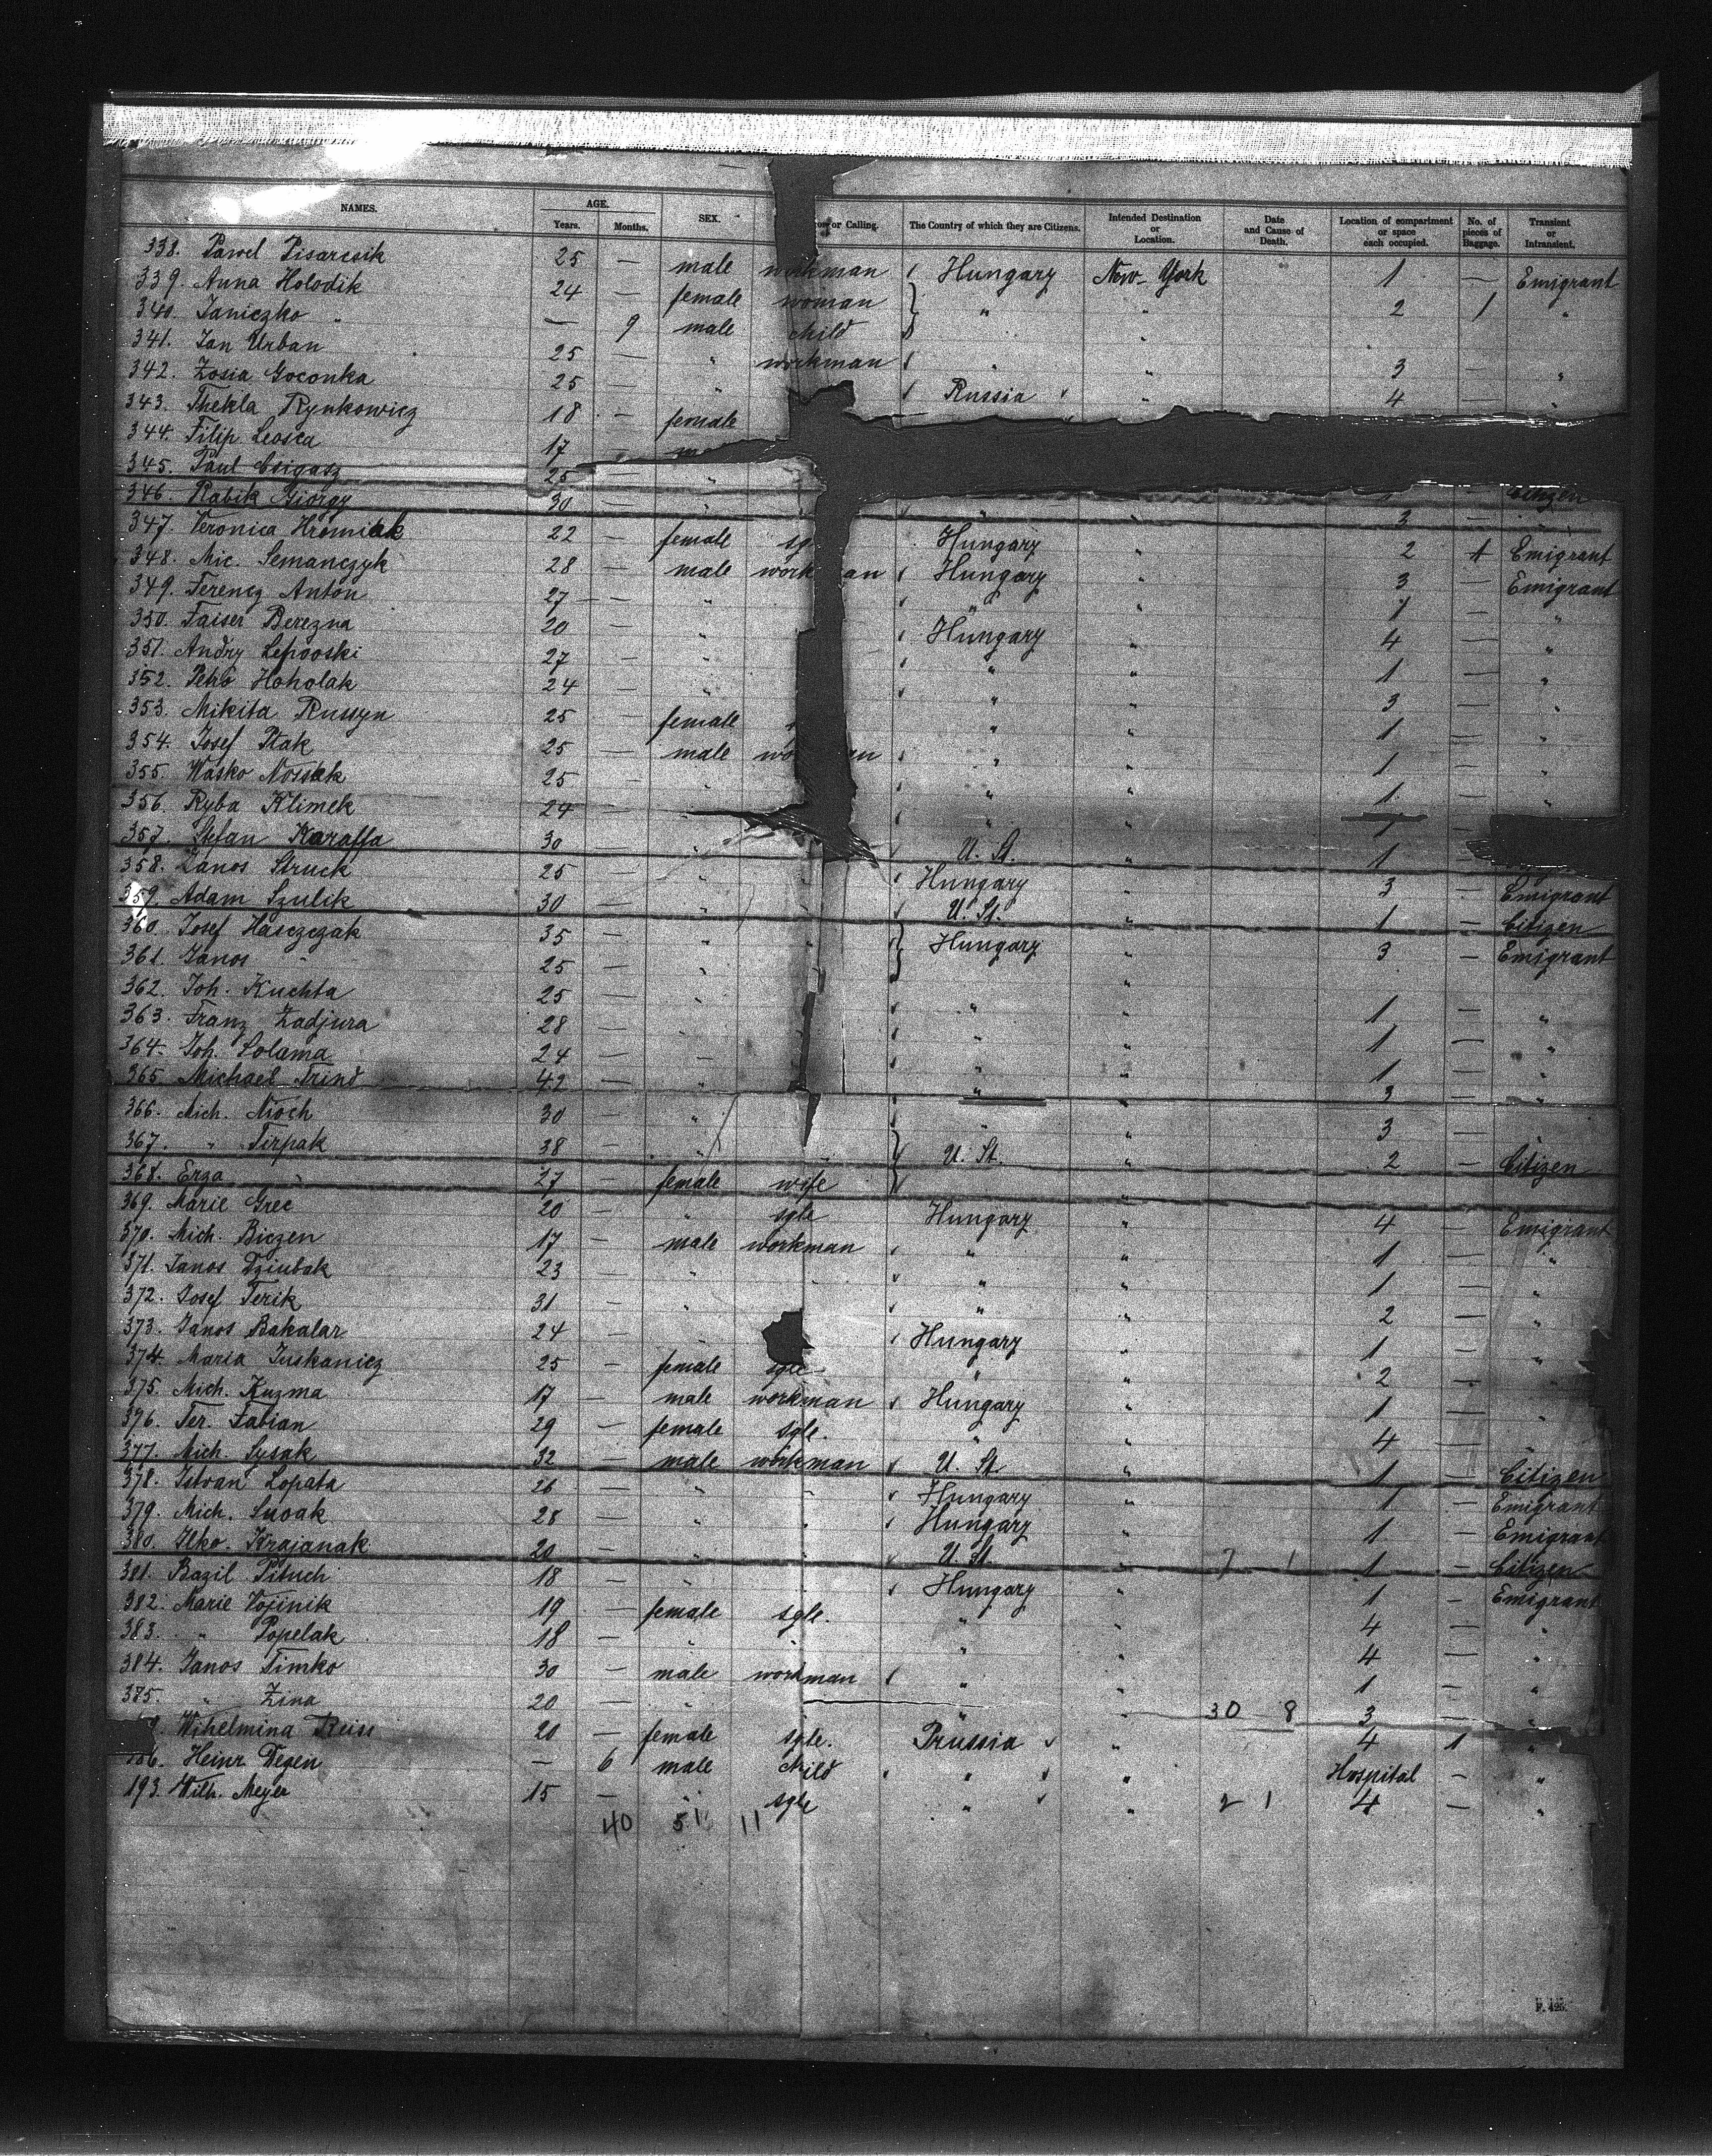 NAMES. AGE. Years. Months. SEX. or Calling. The Country of which they are Citizens. Intended Destination or Location. Date and Cause of Death. Location of compartment or space each occupied. No. of pieces of Baggage. Transient or Intransient.
338. Pavel Pisarcsik 25 — male workman Hungary New-York 1 — Emigrant
339. Anna Holodik 24 — female woman " " 2 1 "
340. Janiczko " — 9 male child "
341. Jan Urban 25 — " workman " " 3 — "
342. Zosia Goconka 25 — " Russia " 4 — "
343. Thekla Rynkowicz 18 — female
344. Filip Leosca 17
345. Paul Csigasz 25 — "
346. Rabik Giorgy 30 — " " " 3 — Citizen
347. Veronica Hromiak 22 — female Hungary " 2 1 Emigrant
348. Mic. Semanczyk 28 — male workman Hungary " 3 — Emigrant
349. Ferencz Anton 27 — " " " 1 — "
350. Faiser Berezna 20 — " Hungary " 4 — "
351. Andry 27 — " " " 1 — "
352. Petro Hoholak 24 — " " " 3 — "
353. Mikita Russyn 25 — female " " 1 — "
354. Josef Ptak 25 — male " " 1 — "
355. Wasko 25 — " " " 1 — "
356. Ryba Klimek 24 — " " " 1 —
357. Stefan Karaffa 30 — " U. St. " 1
358. Janos Struck 25 — " Hungary " 3 — Emigrant
359. Adam Szulik 30 — " " U. St. " 1 — Citizen
360. Josef Hasczczak 35 — " " Hungary " 3 — Emigrant
361. Janos " 25 — " " "
362. Joh. Kuchta 25 — " " " 1 — "
363. Franz Zadjura 28 — " " " 1 — "
364. Joh. Solama 24 — " " " 1 — "
365. Michael Trind 42 — " " " 3 — "
366. Mich. Nioch 30 — " " " 3 — "
367. " Tirpak 38 — " U. St. " 2 — Citizen
368. Erza " 27 — female wife "
369. Marie Grec 20 — " sgle Hungary " 4 — Emigrant
370. Mich. Biczen 17 — male workman " " 1 — "
371. Janos Dziubak 23 — " " " " 1 — "
372. Josef Terik 31 — " " " 2 — "
373. Janos Bakalar 24 — " Hungary " 1 — "
374. Maria Juskanicz 25 — female sgle " " 2 — "
375. Mich. Kuzma 17 — male workman Hungary " 1 — "
376. Ter. Fabian 29 — female sgle. " " 4 — "
377. Mich. Sysak 32 — male workman U. St. " 1 — Citizen
378. Istvan Lopata 26 — " " Hungary " 1 — Emigrant
379. Mich. 28 — " " Hungary " 1 — Emigrant
380. Ilko. Krajanak 20 — " " U. St. " 7 1 1 — Citizen
381. Bazil Pituch 18 — " " Hungary " 1 — Emigrant
382. Marie 19 — female sgle. " " 4 —
383. " Popelak 18 — " " " " 4 — "
384. Janos Timko 30 — male workman " " 1 — "
385. " Zina 20 — " " " 30 8 3 — "
Wihelmina Reiss 20 — female sgle. Prussia " 4 1 "
Heinr Degen — 6 male child " " Hospital — "
193. Wilh. Meyer 15 — " sgle " " 2 1 4 — "
40 51 11